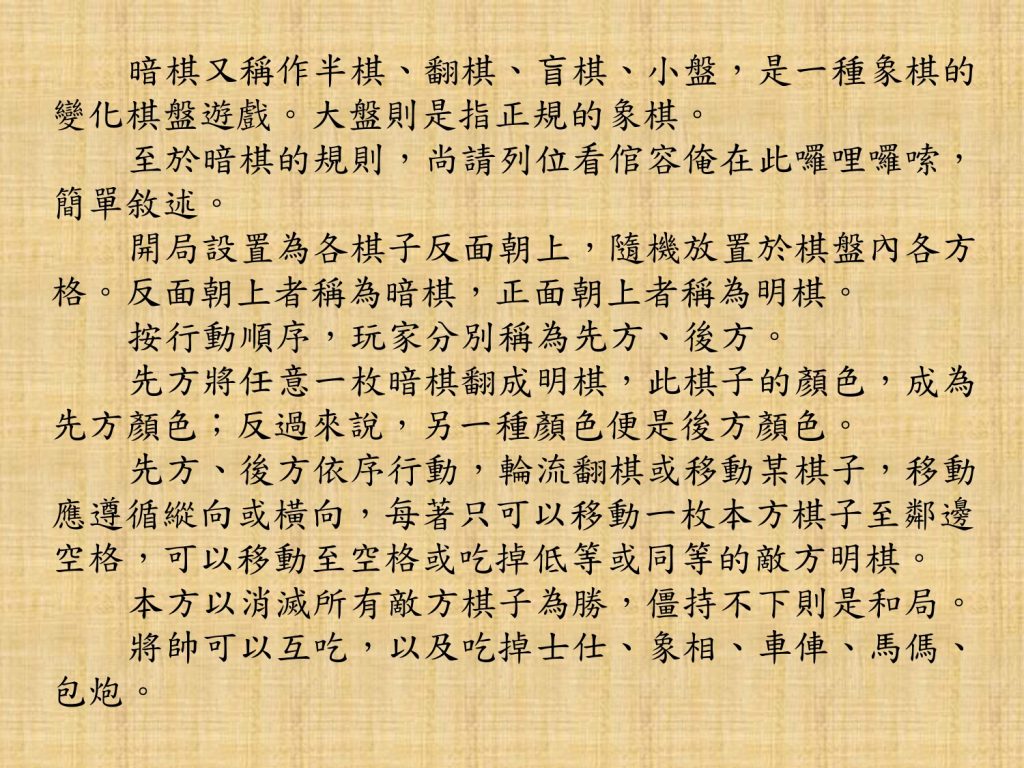 暗棋又稱作半棋、翻棋、盲棋、小盤，是一種象棋的
變化棋盤遊戲。大盤則是指正規的象棋。
至於暗棋的規則，尚請列位看倌容俺在此囉哩囉嗦，
簡單敘述。
開局設置為各棋子反面朝上，隨機放置於棋盤內各方
格。反面朝上者稱為暗棋，正面朝上者稱為明棋。
按行動順序，玩家分別稱為先方、後方。
先方將任意一枚暗棋翻成明棋，此棋子的顏色，成為
先方顏色；反過來說，另一種顏色便是後方顏色。
先方、後方依序行動，輪流翻棋或移動某棋子，移動
應遵循縱向或橫向，每著只可以移動一枚本方棋子至鄰邊
空格，可以移動至空格或吃掉低等或同等的敵方明棋。
本方以消滅所有敵方棋子為勝，僵持不下則是和局。
將帥可以互吃，以及吃掉士仕、象相、車俥、馬傌、
包炮。